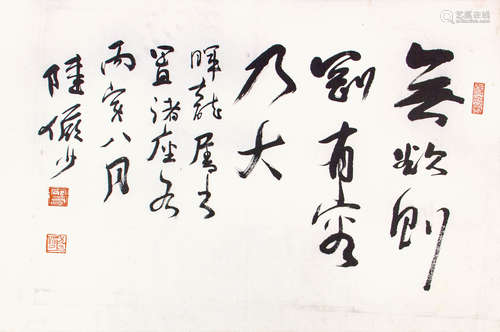 無欲則
剛有容
乃大
暉龍屬書
置諸座右
丙寅八月
陸儼少